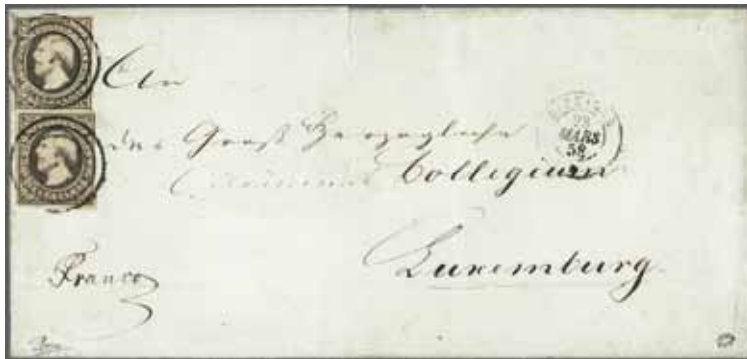 An
das Groß Herzogliche
Collegium
Luxemburg.
Franco
MARS
58